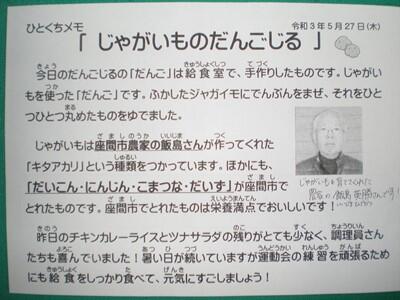 ひとくちメモ
令和3年5月27日(木)
「 じゃがいものだんごじる 」
今日のだんごじるの「だんご」は給食室で、手作りしたものです。じゃがい
もを使った「だんご」です。ふかしたジャガイモにでんぷんをまぜ、それをひと
つひとつ丸めたものをゆでました。
じゃがいもは座間市農家の飯島さんが作ってくれた
「キタアカリ」という種類をつかっています。ほかにも、
「だいこん・にんじん・こまつな・だいず」が座間市で
とれたものです。座間市でとれたものは栄養満点でおいしいです!
じゃがいもを育ててくれた
農家の飯島 英勝さんです!
昨日のチキンカレーライスとツナサラダの残りがとても少なく、調理員さん
たちも喜んでいました!暑い日が続いていますが運動会の練習を頑張るため
にも給食をしっかり食べて、元気にすごしましょう!